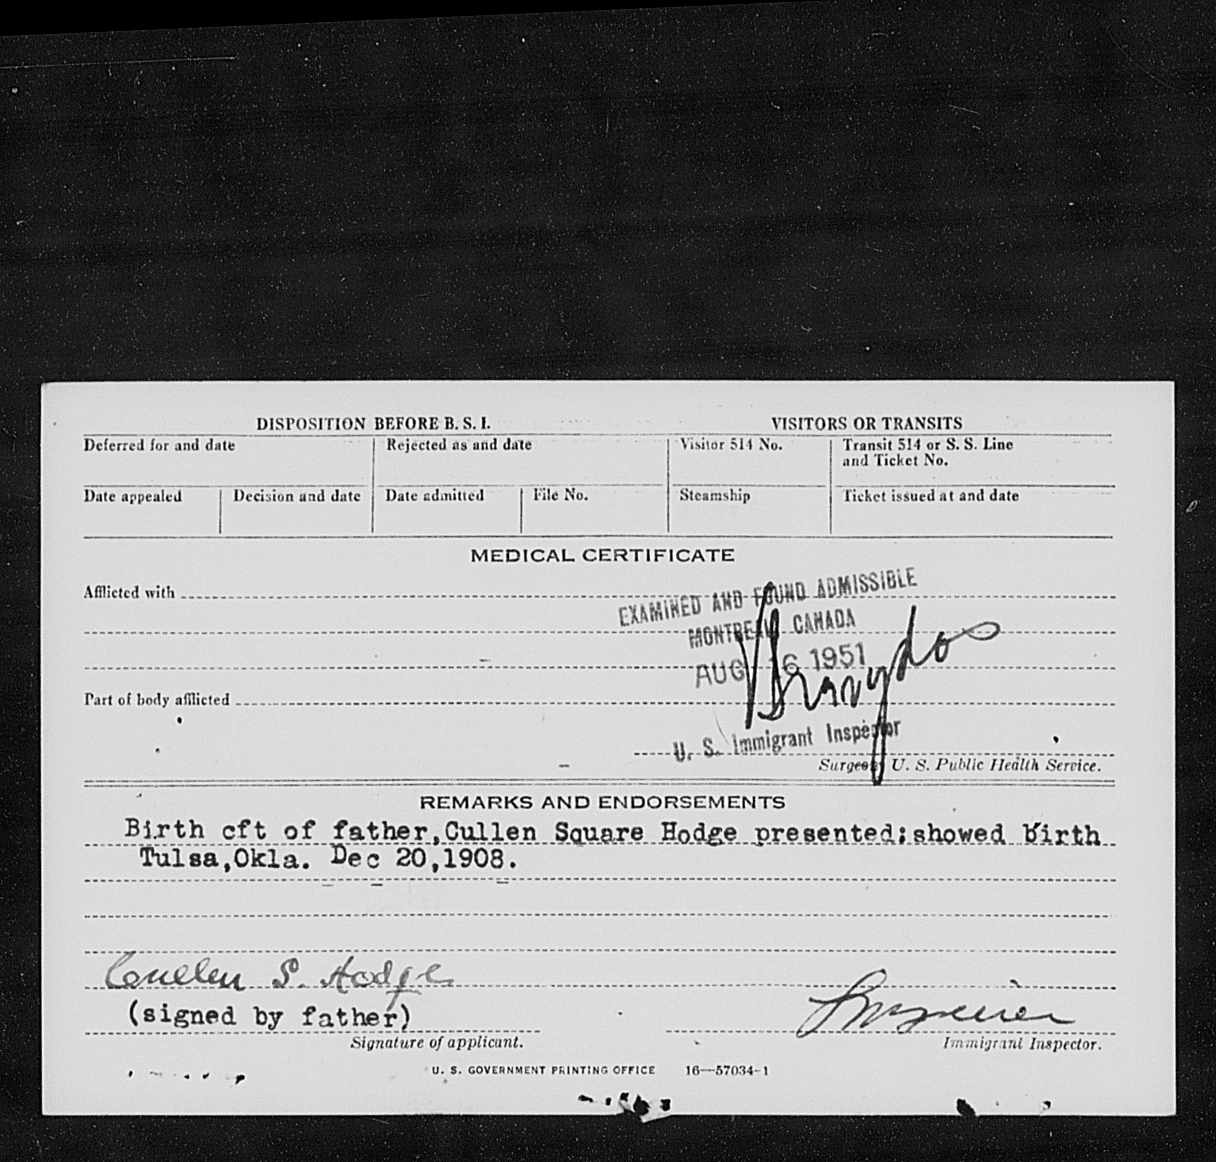 DISPOSITION BEFORE B. S. I.
VISITORS OR TRANSITS
Deferred for and date
Rejected as and date
Visitor 514 No.
Transit 514 or S. S. Line
and Ticket No.
Date appealed
Decision and date
Date admitted
File No.
Steamship
Ticket issued at and date
MEDICAL CERTIFICATE
Afflicted with
EXAMINED AND FOUND ADMISSIBLE
MONTREAL, CANADA
AUG 16 1951
Part of body afflicted
U. S. Immigrant Inspector
Surgeon U. S. Public Health Service.
REMARKS AND ENDORSEMENTS
Birth cft of father,Cullen Square Hodge presented;showed birth
Tulsa,Okla. Dec 20,1908.
Cullen S. Hodge
(signed by father)
Signature of applicant.
Immigrant Inspector.
U. S. GOVERNMENT PRINTING OFFICE 16—57034-1